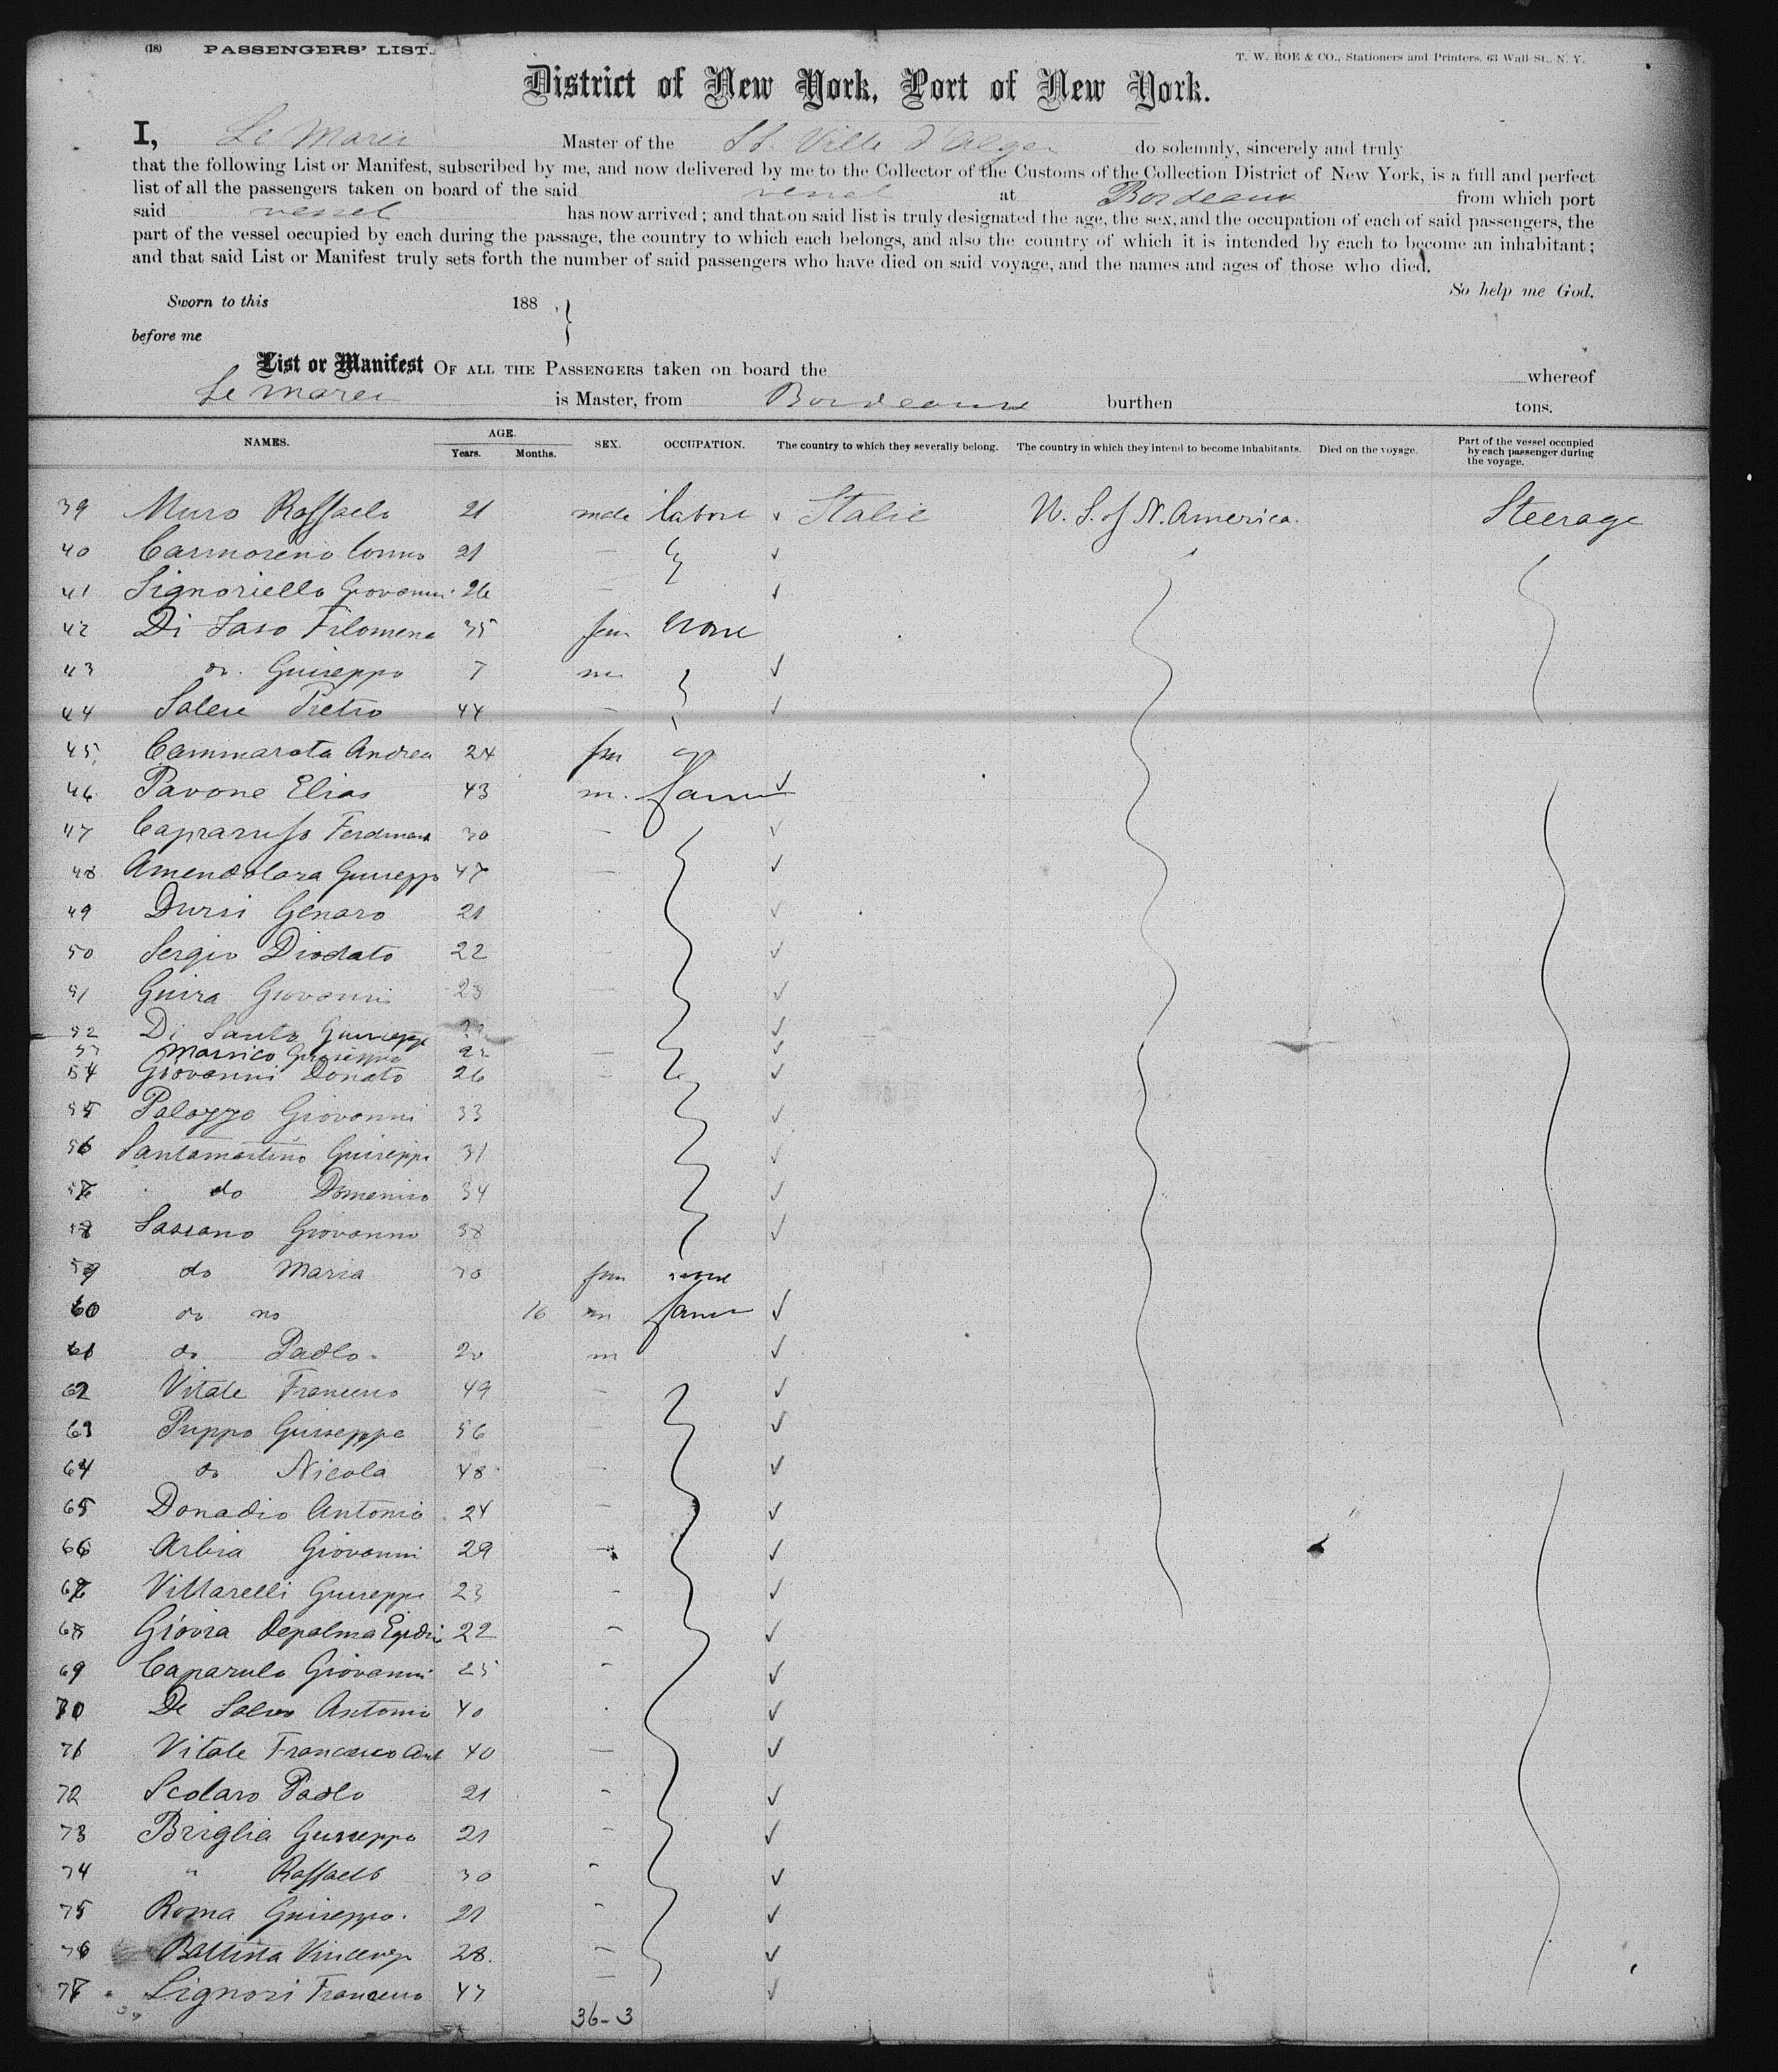 (18) PASSENGERS' LIST. T. W. ROE & CO., Stationers and Printers, 63 Wall St., N. Y.
District of New York, Port of New York.
I, Le Marie Master of the SS. Ville d'Alger do solemnly, sincerely and truly
that the following List or Manifest, subscribed by me, and now delivered by me to the Collector of the Customs of the Collection District of New York, is a full and perfect
list of all the passengers taken on board of the said vessel at Bordeaux from which port
said vessel has now arrived; and that on said list is truly designated the age, the sex, and the occupation of each of said passengers, the
part of the vessel occupied by each during the passage, the country to which each belongs, and also the country of which it is intended by each to become an inhabitant;
and that said List or Manifest truly sets forth the number of said passengers who have died on said voyage, and the names and ages of those who died.
So help me God.
Sworn to this 188 ,
before me
List or Manifest OF ALL THE PASSENGERS taken on board the whereof
is Master, from Bordeaux burthen tons.
NAMES. AGE. Years. Months. SEX. OCCUPATION. The country to which they severally belong. The country in which they intend to become inhabitants. Died on the voyage. Part of the vessel occupied by each passenger during the voyage.
39 Muro Raffaelo 21 male labore Italie U. S. of N. America. Steerage
40 Carmoseno 21
41 Signoriello Giovanni 26
42 Di Jaso Filomena 35 fem none
43 do. Guiseppo 7 m
44 Salese Pietro 44
45 Cammarota Andrea 24 fem
46 Pavone Elias 43 m. farm
47 Capraruso Ferdinand 30
48 Amendolara Guiseppo 47
49 Dursi Genaro 21
50 Sergio Diodato 22
51 Guira Giovanni 23
52 Di Santo Guiseppe
53 Marsico Guiseppe 22
54 Giovanni Donato 26
55 Palazzo Giovanni 33
56 Santamartino Guiseppe 31
57 do Domenico 34
58 Sassano Giovanno 38
59 do Maria 30 fem none
60 do no 16 m farm
61 do Paolo. 20 m
62 Vitale Francesco 49
63 Puppo Guiseppe 56
64 do Nicola 48
65 Donadio Antonio 24
66 Arbia Giovanni 29
67 Vittarelli Guiseppe 23
68 Giovia Depalma Egidio 22
69 Caparulo Giovanni 25
70 De Salvo Antonio 40
71 Vitale Francesco Ant 40
72 Scolaro Paolo 21
73 Briglia Guiseppo 21
74 " Raffaelo 30
75 Roma Guiseppo. 21
76 Battista Vincenzo 28.
77 Signori Francesco 47
36-3